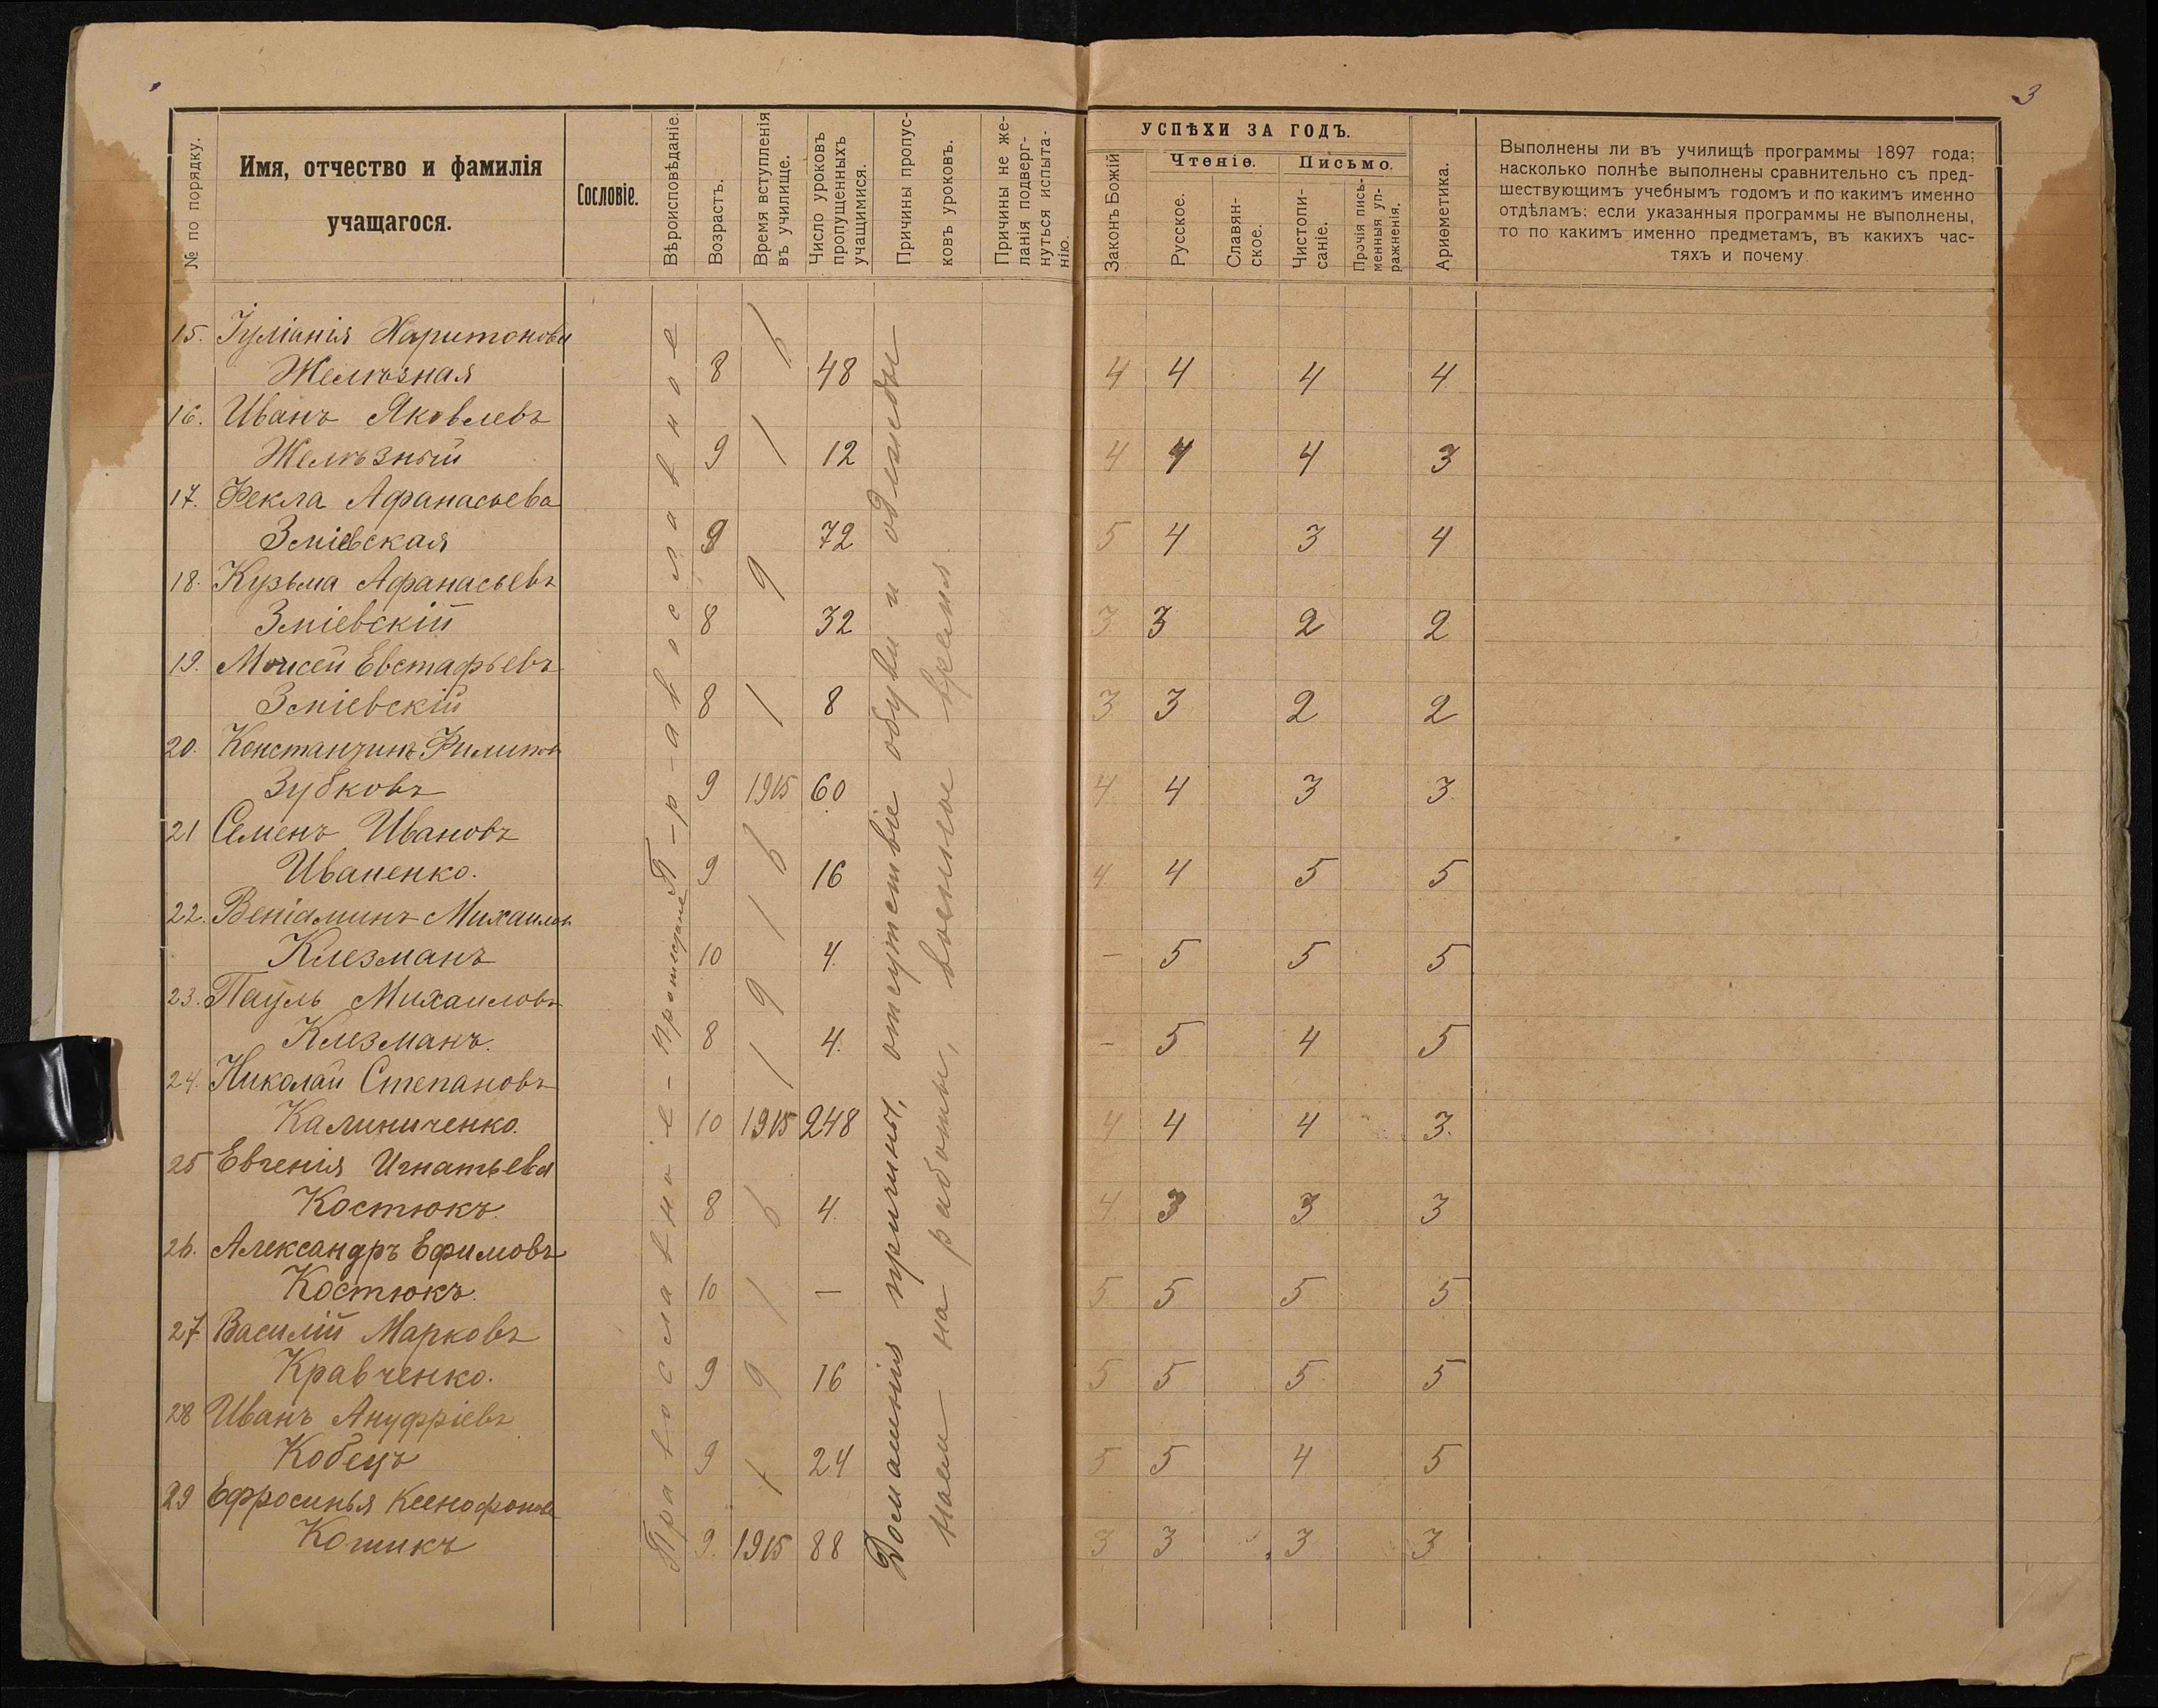 3
№ по порядку.
Имя, отчество и фамилія
учащагося.
Сословіе.
Вѣроисповѣданіе.
Возрастъ.
Время вступленія
въ училище.
Число уроковъ
пропущенныхъ
учащимися.
Причины пропус-
ковъ уроковъ.
Причины не же-
ланія подверг-
нуться испыта-
нію.
УСПѢХИ ЗА ГОДЪ.
Законъ Божій
Чтеніе.
Русское.
Славян-
ское.
Письмо.
Чистопи-
саніе.
Прочія пись-
менныя уп-
ражненія.
Ариѳметика.
Выполнены ли въ училищѣ программы 1897 года;
насколько полнѣе выполнены сравнительно съ пред-
шествующимъ учебнымъ годомъ и по какимъ именно
отдѣламъ; если указанныя программы не выполнены,
то по какимъ именно предметамъ, въ какихъ час-
тяхъ и почему.
15. Іуліанія Харитонова
Желѣзная 8 48 4 4 4 4
16. Иванъ Яковлевъ
Желѣзный 9 12 4 4 4 3
17. Ѳекла Афанасьева
Зміевская 9 72 5 4 3 4
18. Кузьма Афанасьевъ
Зміевскій 8 32 3 3 2 2
19. Моисей Евстафьевъ
Зміевскій 8 8 3 3 2 2
20. Филипов
Зубковъ 9 1915 60 4 4 3 3
21 Семенъ Ивановъ
Иваненко. 9 16 4 4 5 5
22. Веніаминъ Михаилов
Клезманъ 10 4 - 5 5 5
23. Пауль Михаиловъ
Клезманъ. 8 4 - 5 4 5
24. Николай Степановъ
Калиниченко. 10 1915 248 4 4 4 3.
25 Евгенія Игнатьева
Костюкъ. 8 4 4 3 3 3
26. Александръ Ефимовъ
Костюкъ. 10 - 5 5 5 5
27 Василій Марковъ
Кравченко. 9 16 5 5 5 5
28 Иванъ Ануфріевъ
Кобецъ 9 24 5 5 4 5
29 Ефросинья Ксенофонова
Кошикъ 9. 1915 88 3 3 3 3
Православное
Православное
Домашнія причины, отсутствіе обуви и одежды
наем на работы, военное время